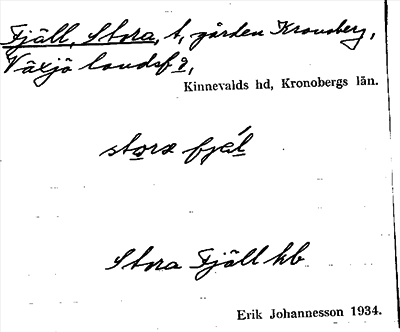 Fjäll, Stora, t, gården Kronoberg,
Växjö landsf 
Kinnevalds hd, Kronobergs län.
stora fjäl
Stora Fjäll hb
Erik Johannesson 1934.